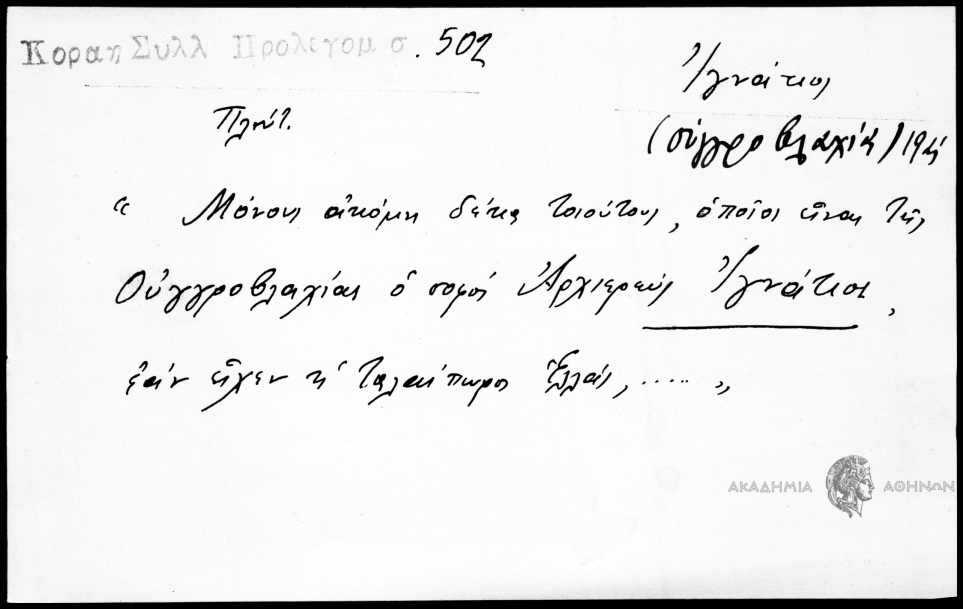 Κοραη Συλλ Προλεγομ σ. 502
Ἰγνάτιος
Πλούτ.
(Οὑγγροβλαχία) 19
“ Μόνους ἀκόμη δέκα τοιούτους, ὁποῖος εἶναι τῆς
Οὑγγροβλαχίας ὁ σοφὸς Ἀρχιερεὺς Ἰγνάτιος,
ἐὰν εἶχεν ἡ ταλαίπωρος Ἑλλάς, ..... „
ΑΚΑΔΗΜΙΑ ΑΘΗΝΩΝ